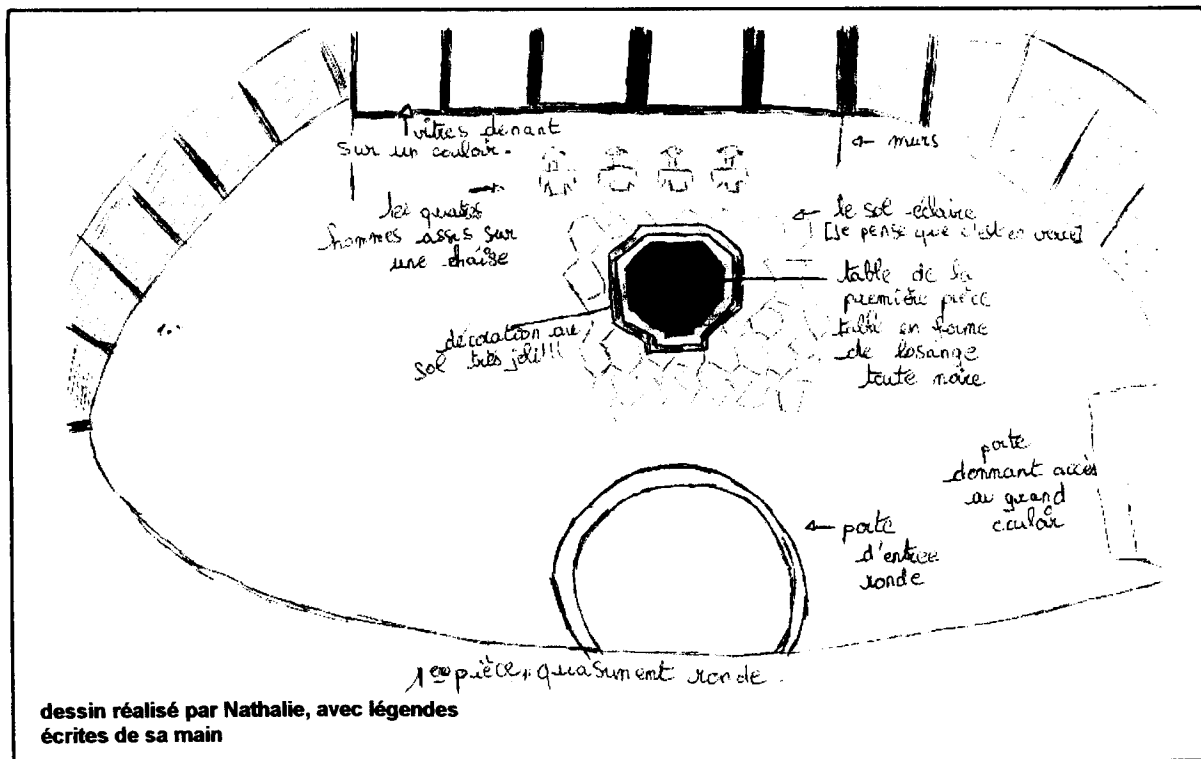 vitres donnant
sur un couloir.
murs
les quatres
hommes assis sur
une chaise
le sol éclaire
[Je pense que c'est en verre]
table de la
première pièce
table en forme
de losange
toute noire
décoration au
sol très joli!!!
porte
donnant accès
au grand
couloir
porte
d'entrée
ronde
1ere pièce, quasiment ronde.
dessin réalisé par Nathalie, avec légendes
écrites de sa main